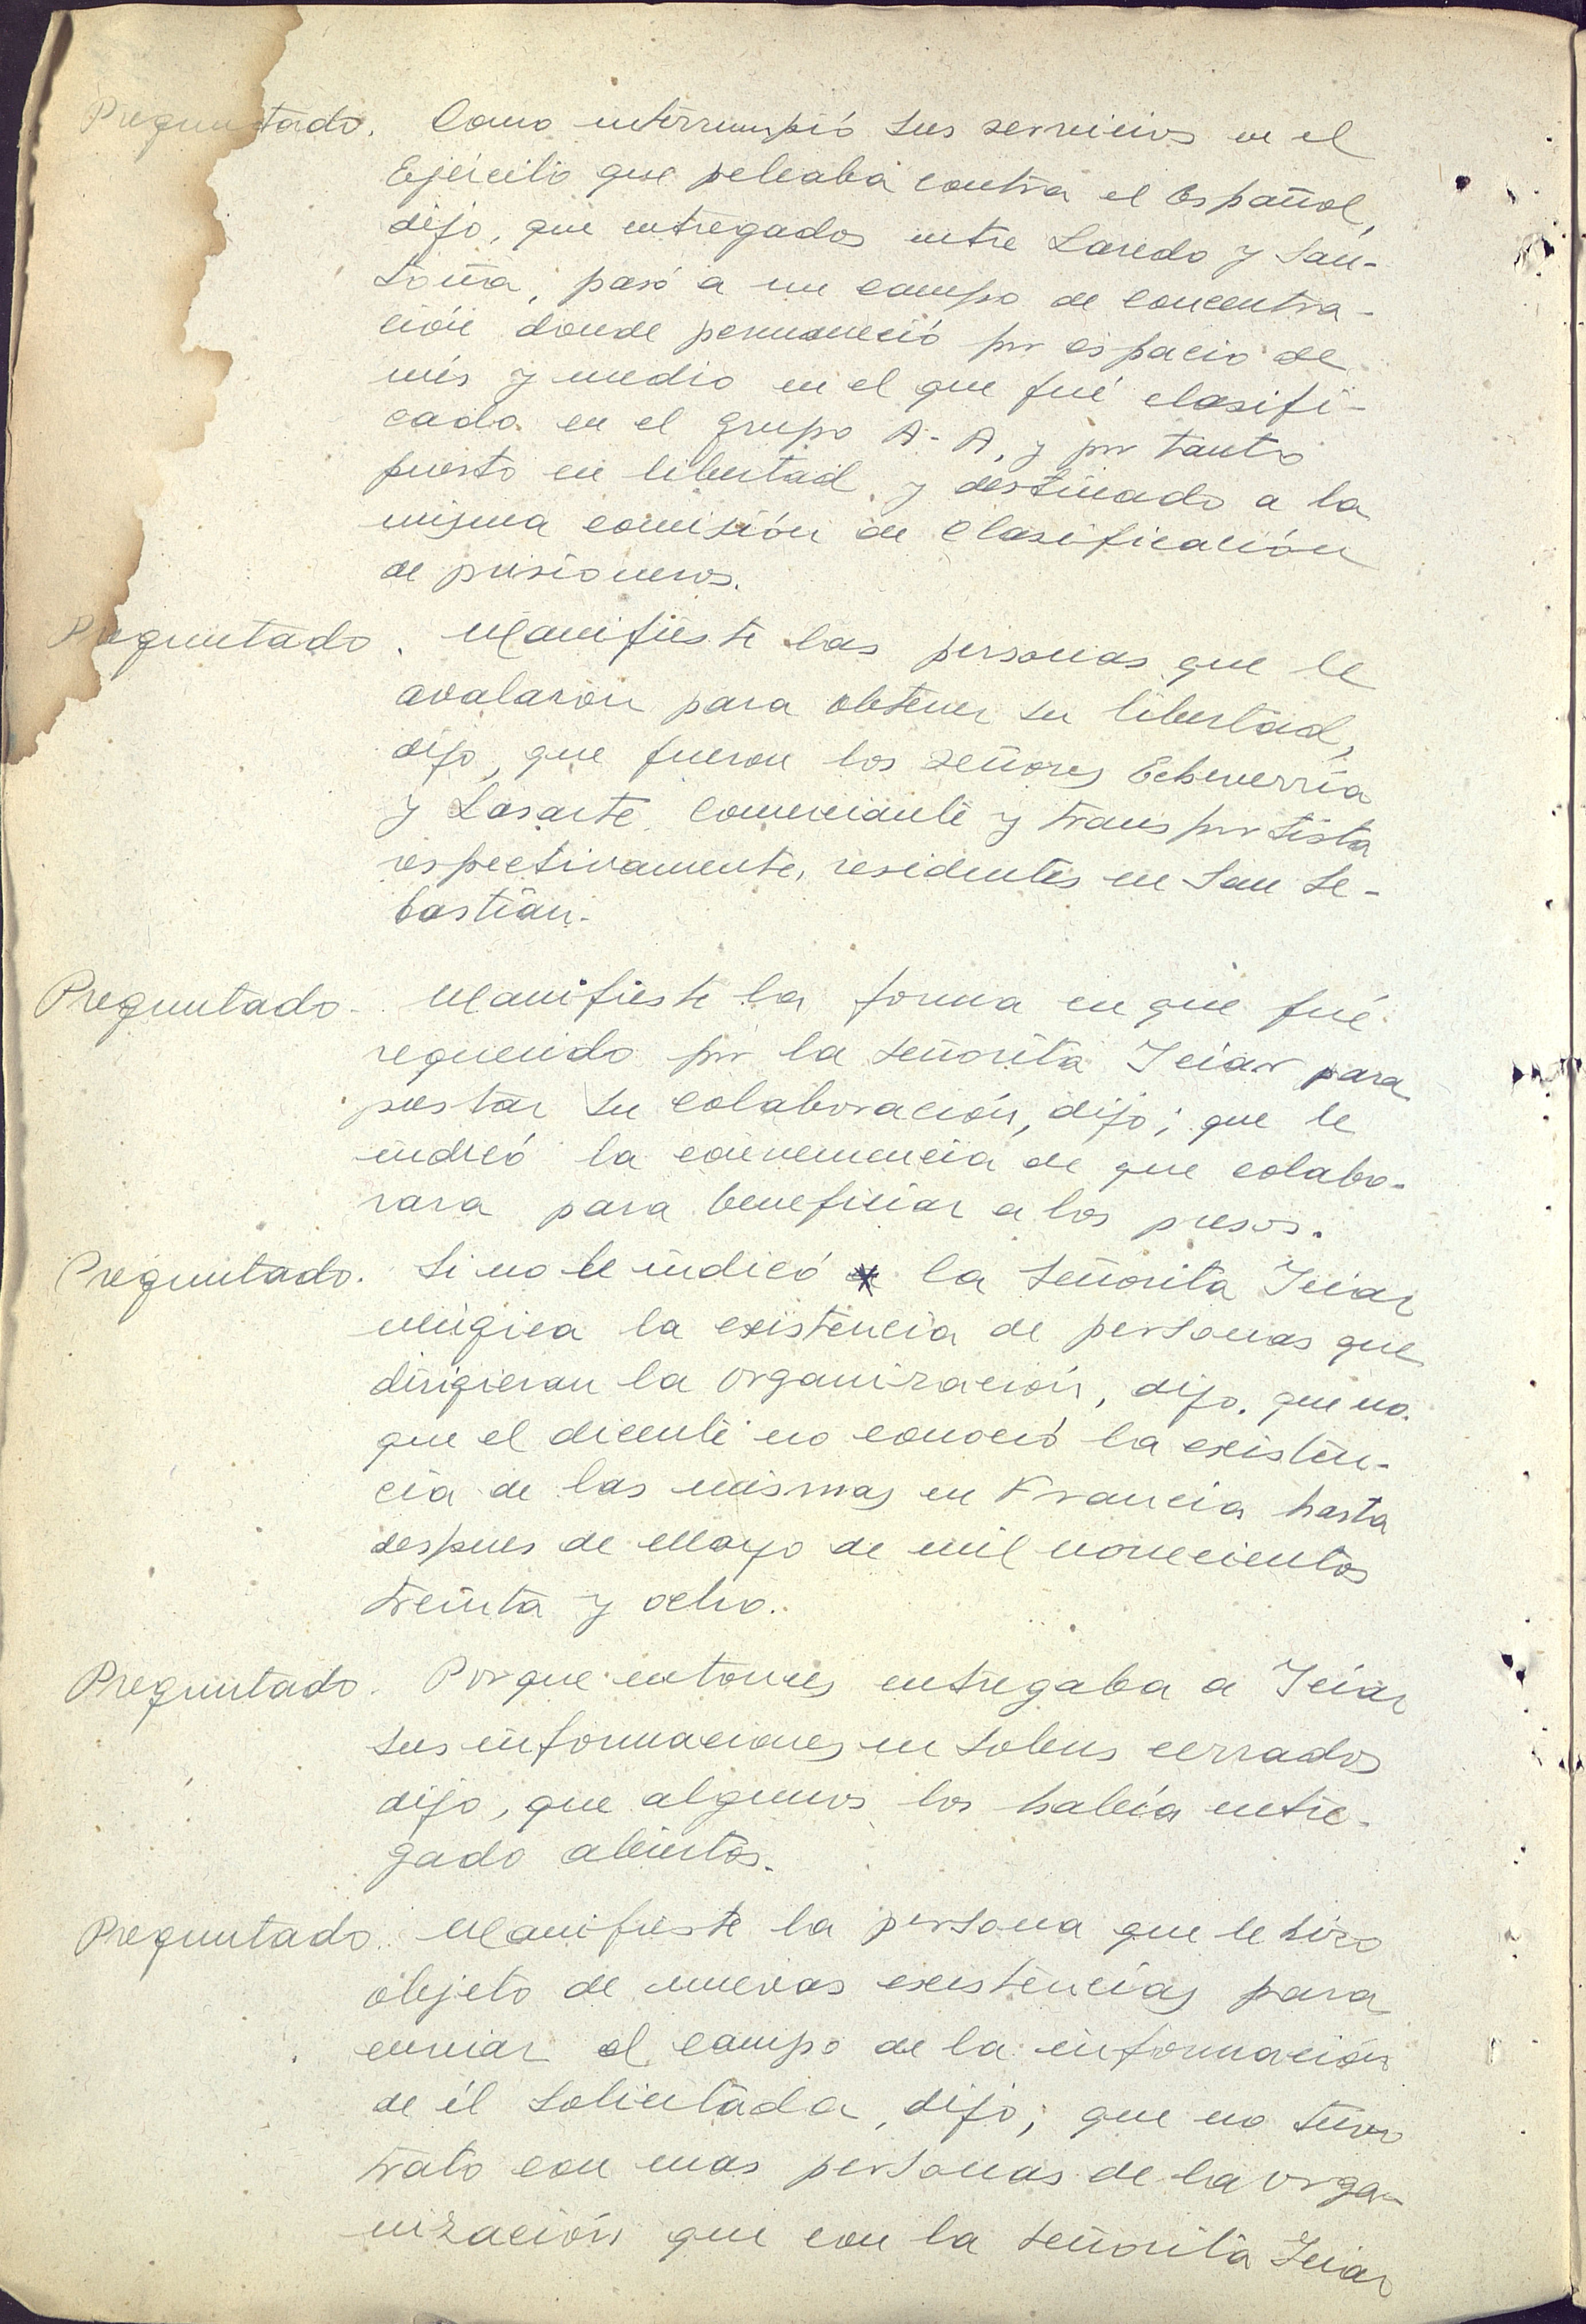 Preguntado. Como interrumpió sus servicios en el
Ejército que peleaba contra el Español,
dijo, que entregados entre Laredo y San-
toña, pasó a un campo de concentra-
ción donde permaneció por espacio de
mes y medio en el que fué clasifi-
cado en el grupo A-A, y por tanto
puesto en libertad y destinado a la
misma comisión de clasificación
de prisioneros.
Preguntado. Manifieste las personas que le
avalaron para obtener su libertad,
dijo, que fueron los señores Echeverría
y Lasarte, comerciante y transportista
respectivamente, residentes en San Se-
bastián.
Preguntado. Manifieste la forma en que fué
requerido por la señorita Iciar para
prestar su colaboración, dijo; que le
indicó la conveniencia de que colabo-
rara para beneficiar a los presos.
Preguntado. Si no le indicó la señorita Iciar
Múgica la existencia de personas que
dirigieran la organización, dijo. que no.
que el dicente no conoció la existen-
cia de las mismas en Francia hasta
despues de Mayo de mil novecientos
treinta y ocho.
Preguntado. Porque entonces entregaba a Iciar
sus informaciones en sobres cerrados
dijo, que algunos los había entre-
gado abiertos.
Preguntado. Manifieste la persona que le hizo
objeto de nuevas existencias para
enviar al campo de la información
de él solicitada, dijo; que no tuvo
trato con mas personas de la orga-
nización que con la señorita Iciar